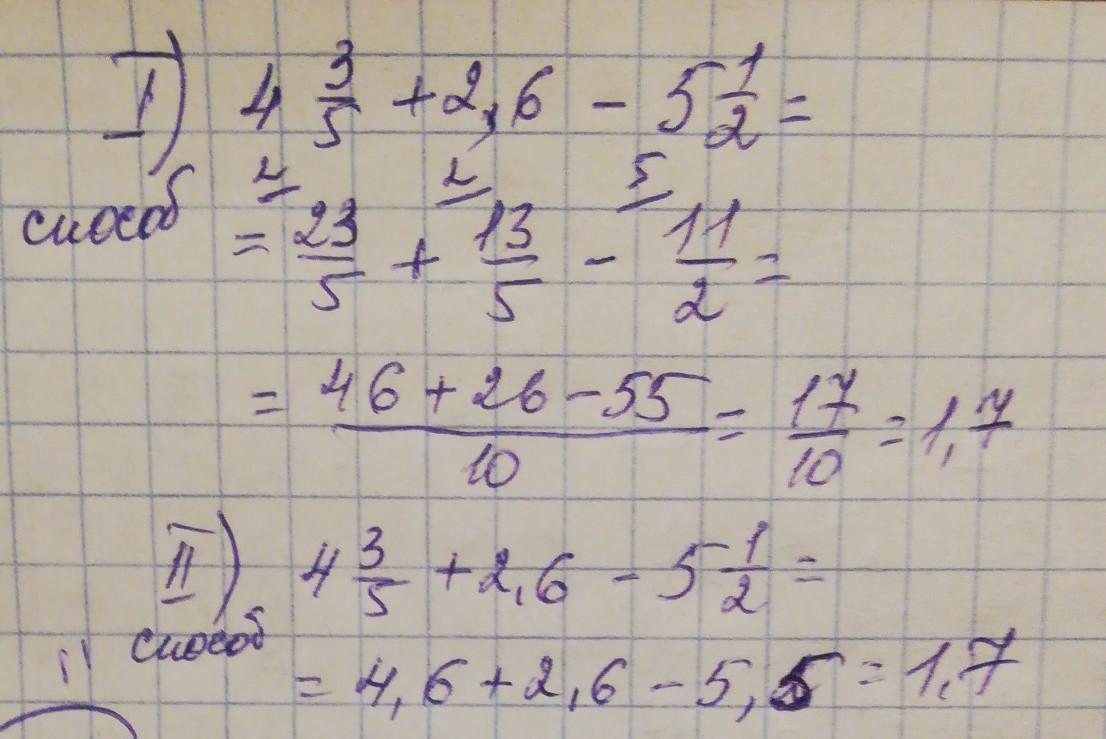 I) 4 3/5 + 2,6 - 5 1/2 =
способ
2 2 5
= 23/5 + 13/5 - 11/2 =
= (46 + 26 - 55)/10 = 17/10 = 1,7
II) 4 3/5 + 2,6 - 5 1/2 =
способ
= 4,6 + 2,6 - 5,5 = 1,7